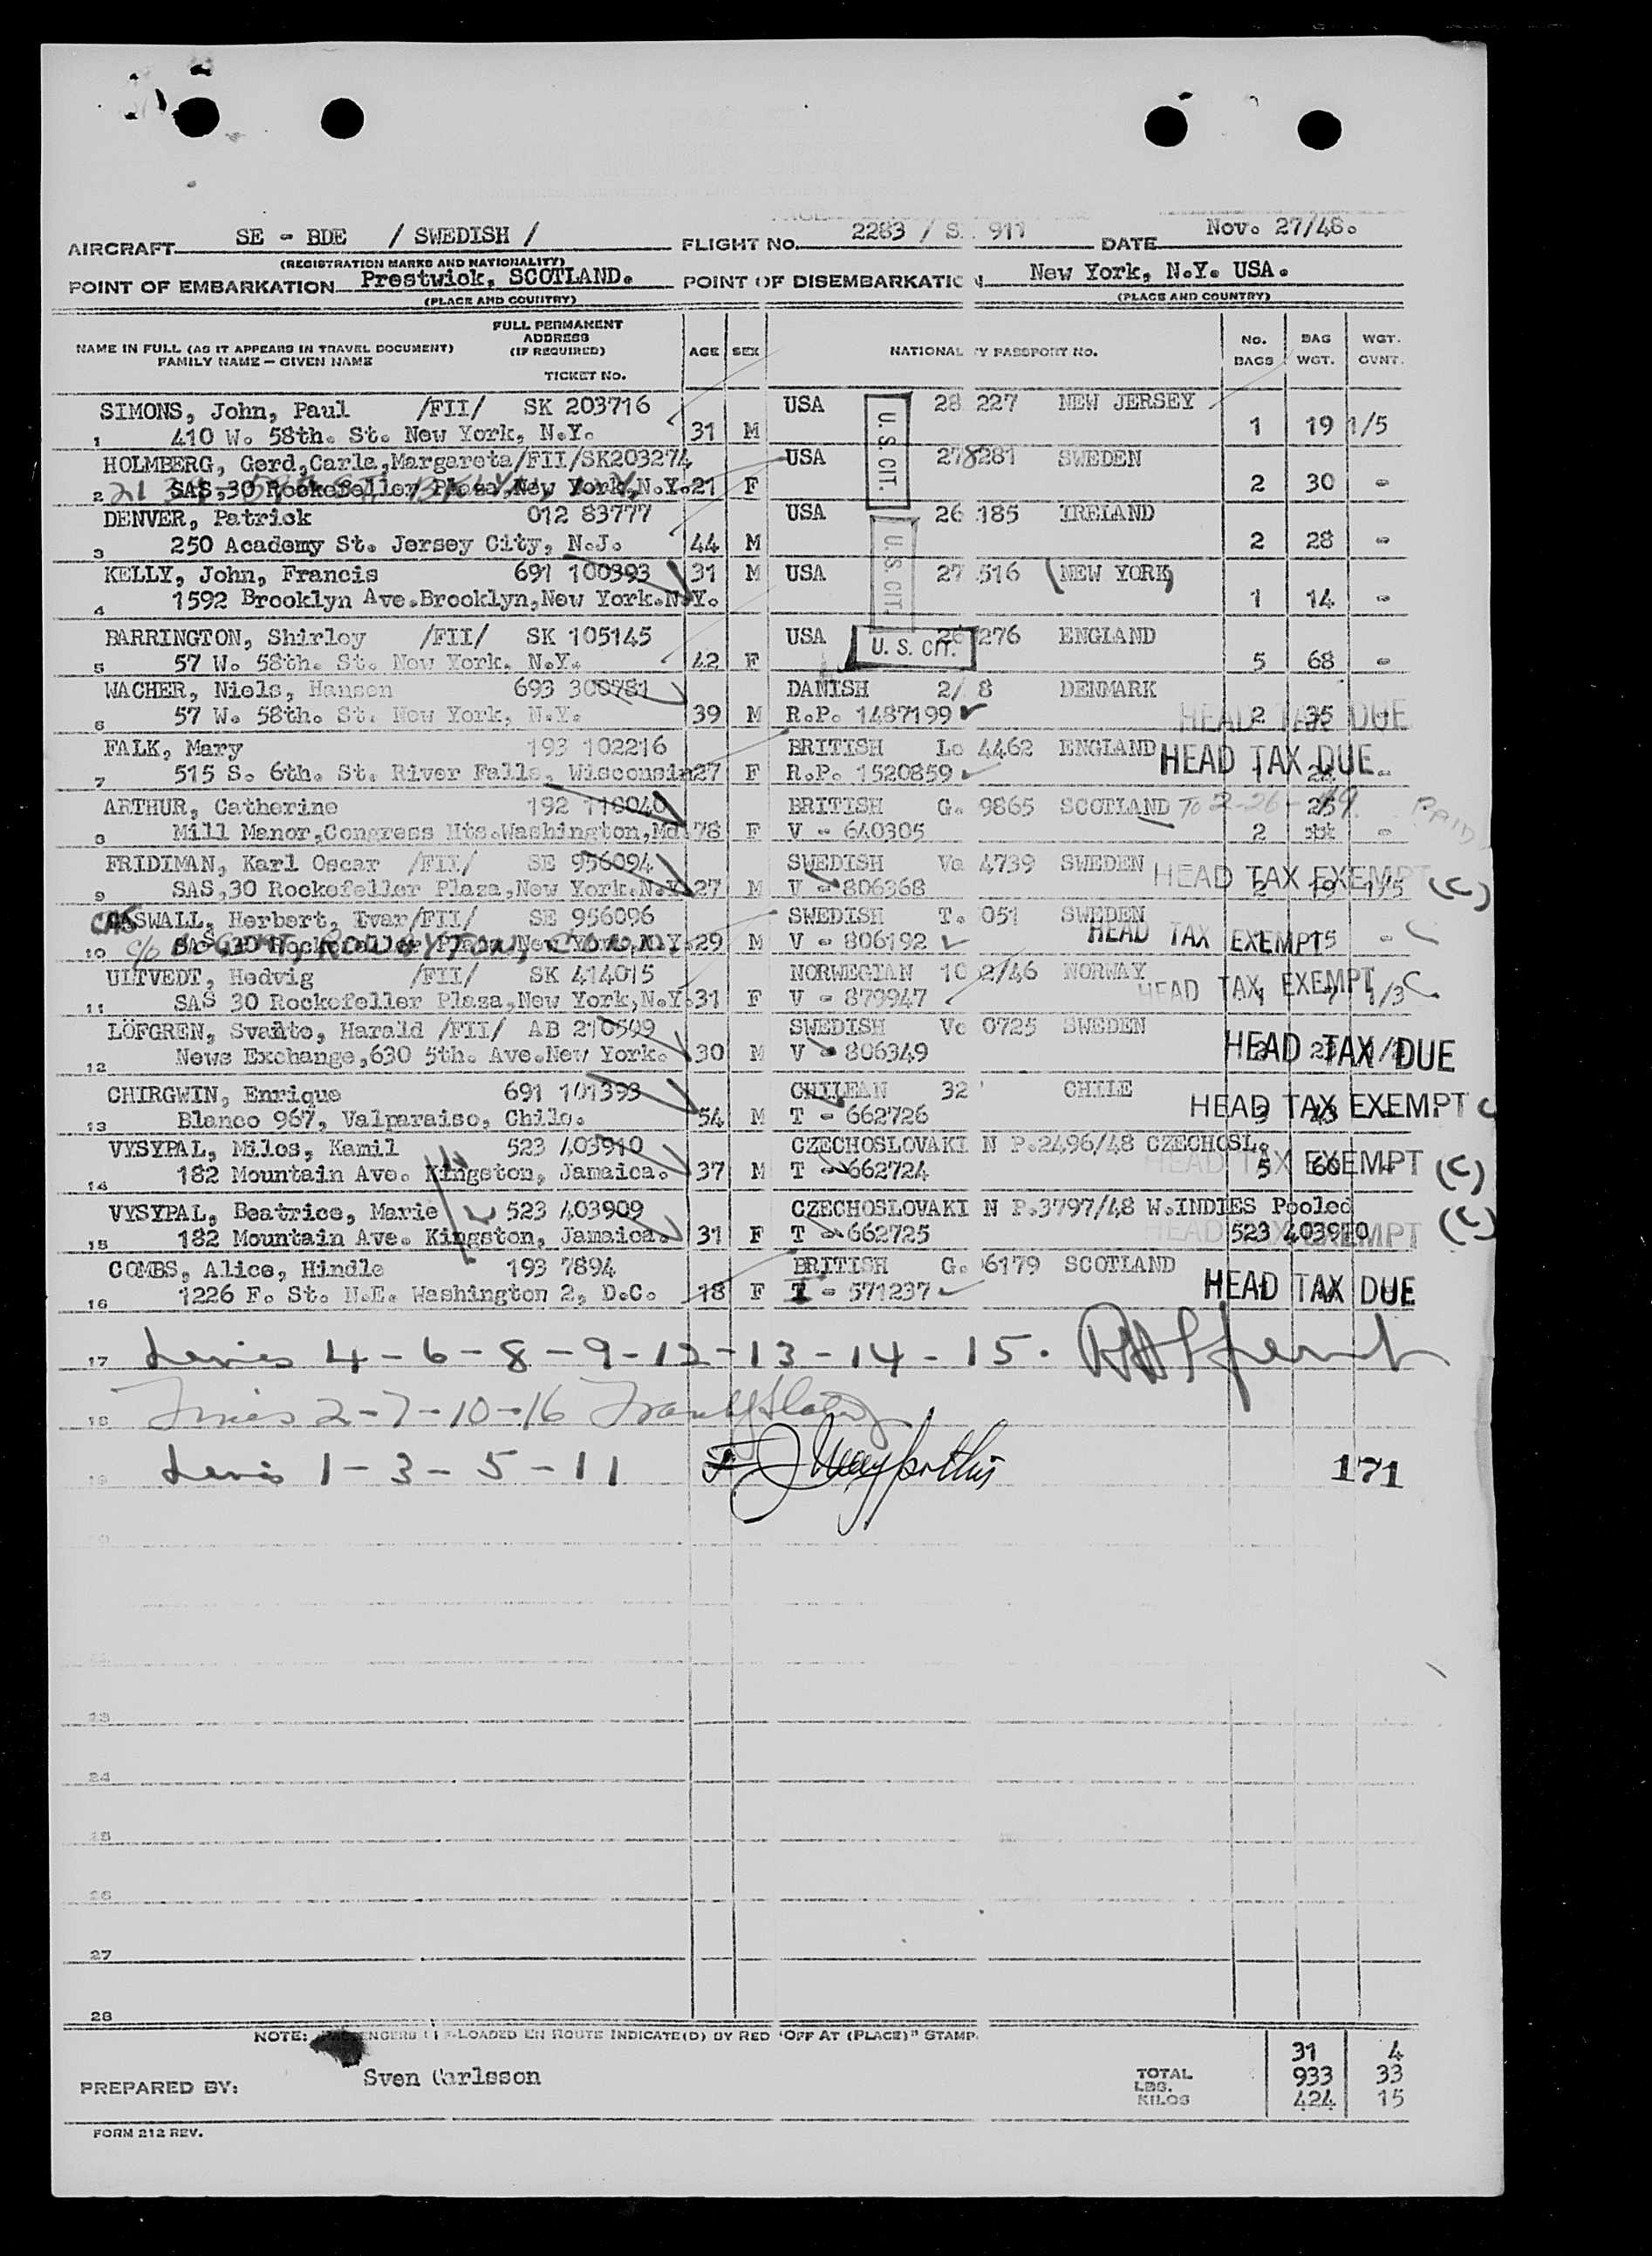 AIRCRAFT SE - BDE / SWEDISH / FLIGHT NO. 2283 / S 911 DATE Nov. 27/48.
(REGISTRATION MARKS AND NATIONALITY)
POINT OF EMBARKATION Prestwick, SCOTLAND. POINT OF DISEMBARKATIC N New York, N.Y. USA.
(PLACE AND COUNTRY) (PLACE AND COUNTRY)
NAME IN FULL (AS IT APPEARS IN TRAVEL DOCUMENT) FAMILY NAME — GIVEN NAME
FULL PERMANENT ADDRESS (IF REQUIRED) TICKET NO.
AGE SEX NATIONAL TY PASSPORT NO. NO. BAGS BAG WGT. WGT. OVNT.
SIMONS, John, Paul /FII/ SK 203716 USA 28 227 NEW JERSEY
1 410 W. 58th. St. New York, N.Y. 31 M 1 19 1/5
U. S. CIT.
HOLMBERG, Gerd,Carla,Margareta/FII/SK203274 USA 278281 SWEDEN
2 SAS,30 Rockefeller Plaza,New York,N.Y. 21 F 2 30 -
DENVER, Patrick 012 83777 USA 26 185 IRELAND
3 250 Academy St. Jersey City, N.J. 44 M 2 28 -
U. S. CIT.
KELLY, John, Francis 691 100393 31 M USA 27 516 (NEW YORK)
4 1592 Brooklyn Ave.Brooklyn,New York.N.Y. 1 14 -
BARRINGTON, Shirley /FII/ SK 105145 USA 26 276 ENGLAND
5 57 W. 58th. St. New York, N.Y. 42 F U. S. CIT. 5 68 -
WACHER, Niels, Hansen 693 300781 DANISH 2/ 8 DENMARK
6 57 W. 58th. St. New York, N.Y. 39 M R.P. 1487199 HEAD TAX DUE 2 35 -
FALK, Mary 193 102216 BRITISH Lo 4462 ENGLAND
7 515 S. 6th. St. River Falls, Wisconsin 27 F R.P. 1520859 HEAD TAX DUE -
ARTHUR, Catherine 192 118040 BRITISH G. 9865 SCOTLAND To 2-26-49. PAID
8 Mill Manor,Congress Hts.Washington,Md. 78 F V - 640305 2 -
FRIDIMAN, Karl Oscar /FII/ SE 956094 SWEDISH Va 4739 SWEDEN
9 SAS,30 Rockefeller Plaza,New York.N.Y. 27 M V - 806368 HEAD TAX EXEMPT 2 19 1/5 (C)
CASWALL, Herbert, Ivar/FII/ SE 956096 SWEDISH T. 051 SWEDEN
10 SAS,30 Rockefeller Plaza,New York,N.Y. 29 M V - 806192 HEAD TAX EXEMPT - C
UITVEDT, Hedvig /FII/ SK 414015 NORWEGIAN 10 2/46 NORWAY
11 SAS 30 Rockefeller Plaza,New York,N.Y. 31 F V - 879947 HEAD TAX EXEMPT 1/3 C
LÖFGREN, Svante, Harald /FII/ AB 210509 SWEDISH Vc 0725 SWEDEN
12 News Exchange,630 5th. Ave.New York. 30 M V - 806349 HEAD TAX DUE
CHIRGWIN, Enrique 691 101393 CHILEAN 32 CHILE
13 Blanco 967, Valparaiso, Chile. 54 M T - 662726 HEAD TAX EXEMPT C
VYSYPAL, Milos, Kamil 523 403910 CZECHOSLOVAKI N P.2496/48 CZECHOSL.
14 182 Mountain Ave. Kingston, Jamaica. 37 M T - 662724 HEAD TAX EXEMPT 5 66 (C)
VYSYPAL, Beatrice, Marie 523 403909 CZECHOSLOVAKI N P.3797/48 W.INDIES Pooled
15 182 Mountain Ave. Kingston, Jamaica. 31 F T - 662725 HEAD TAX EXEMPT 523 403910 (C)
COMBS, Alice, Hindle 193 7894 BRITISH G. 6179 SCOTLAND
16 1226 F. St. N.E. Washington 2, D.C. 18 F T - 571237 HEAD TAX DUE
17 Lines 4-6-8-9-12-13-14-15.
18 Lines 2-7-10-16
19 Lines 1-3-5-11 171
23
24
25
26
27
28
NOTE: PASSENGERS -LOADED EN ROUTE INDICATE(D) BY RED "OFF AT (PLACE)" STAMP.
31 4
PREPARED BY: Sven Carlsson TOTAL LBS. 933 33
KILOS 424 15
FORM 212 REV.